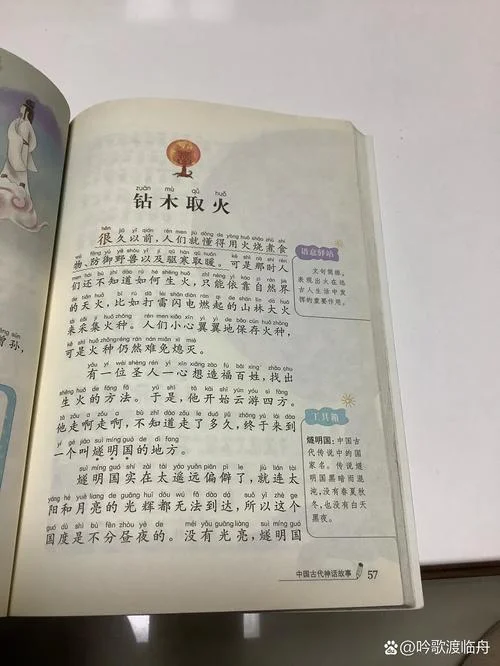 曾孙,
zuān mù qǔ huǒ
钻木取火
很久以前,人们就懂得用火烧煮食
物、防御野兽以及驱寒取暖。可是那时人
们还不知道如何生火,只能依靠自然界
的天火,比如打雷闪电燃起的山林大火
来采集火种。人们小心翼翼地保存火种,
可是火种仍然难免熄灭。
有一位圣人一心想造福百姓,找出
生火的方法。于是,他开始云游四方。
他走啊走啊,不知道走了多久,终于来到
一个叫燧明国的地方。
燧明国实在太遥远偏僻了,就连太
阳和月亮的光辉都无法到达,所以这个
国度是不分昼夜的。没有光亮,燧明国
语意驿站
文句简练,
表现出火在远
古人生活中发
挥的重要作用。
工具箱
燧明国:中国古
代传说中的国
家名。传说燧
明国黑暗而混
沌,没有春夏秋
冬,也没有白天
黑夜。
中国古代神话故事 57
百家号/吟歌渡临舟